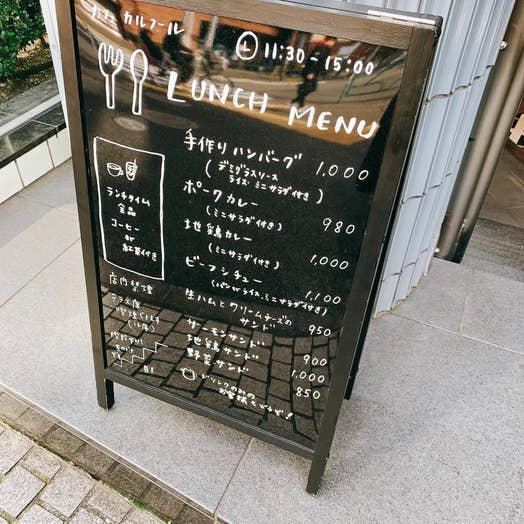 カフェ カルフール
L 11:30-15:00
LUNCH MENU
手作りハンバーグ 1,000
(デミグラスソース
ライス・ミニサラダ付き)
ポークカレー 980
(ミニサラダ付き)
地鶏カレー 1,000
(ミニサラダ付き)
ビーフシチュー 1,100
(パンorライス・ミニサラダ付き)
生ハムとクリームチーズの
サンド 950
サーモンサンド 900
地鶏サンド 1,000
野菜サンド 850
ドリンクのみの
お客様もどうぞ!
ランチタイム
全品
コーヒー
or
紅茶付き
店内禁煙
テラス席
B1